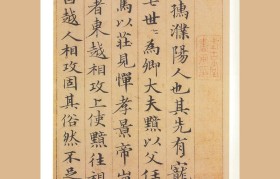 孺濮陽人也其先有寵
七世〻為卿大夫黯以父任
馬以莊見憚孝景帝崩
者東越相攻上使黯往視
越人相攻固其俗然不足